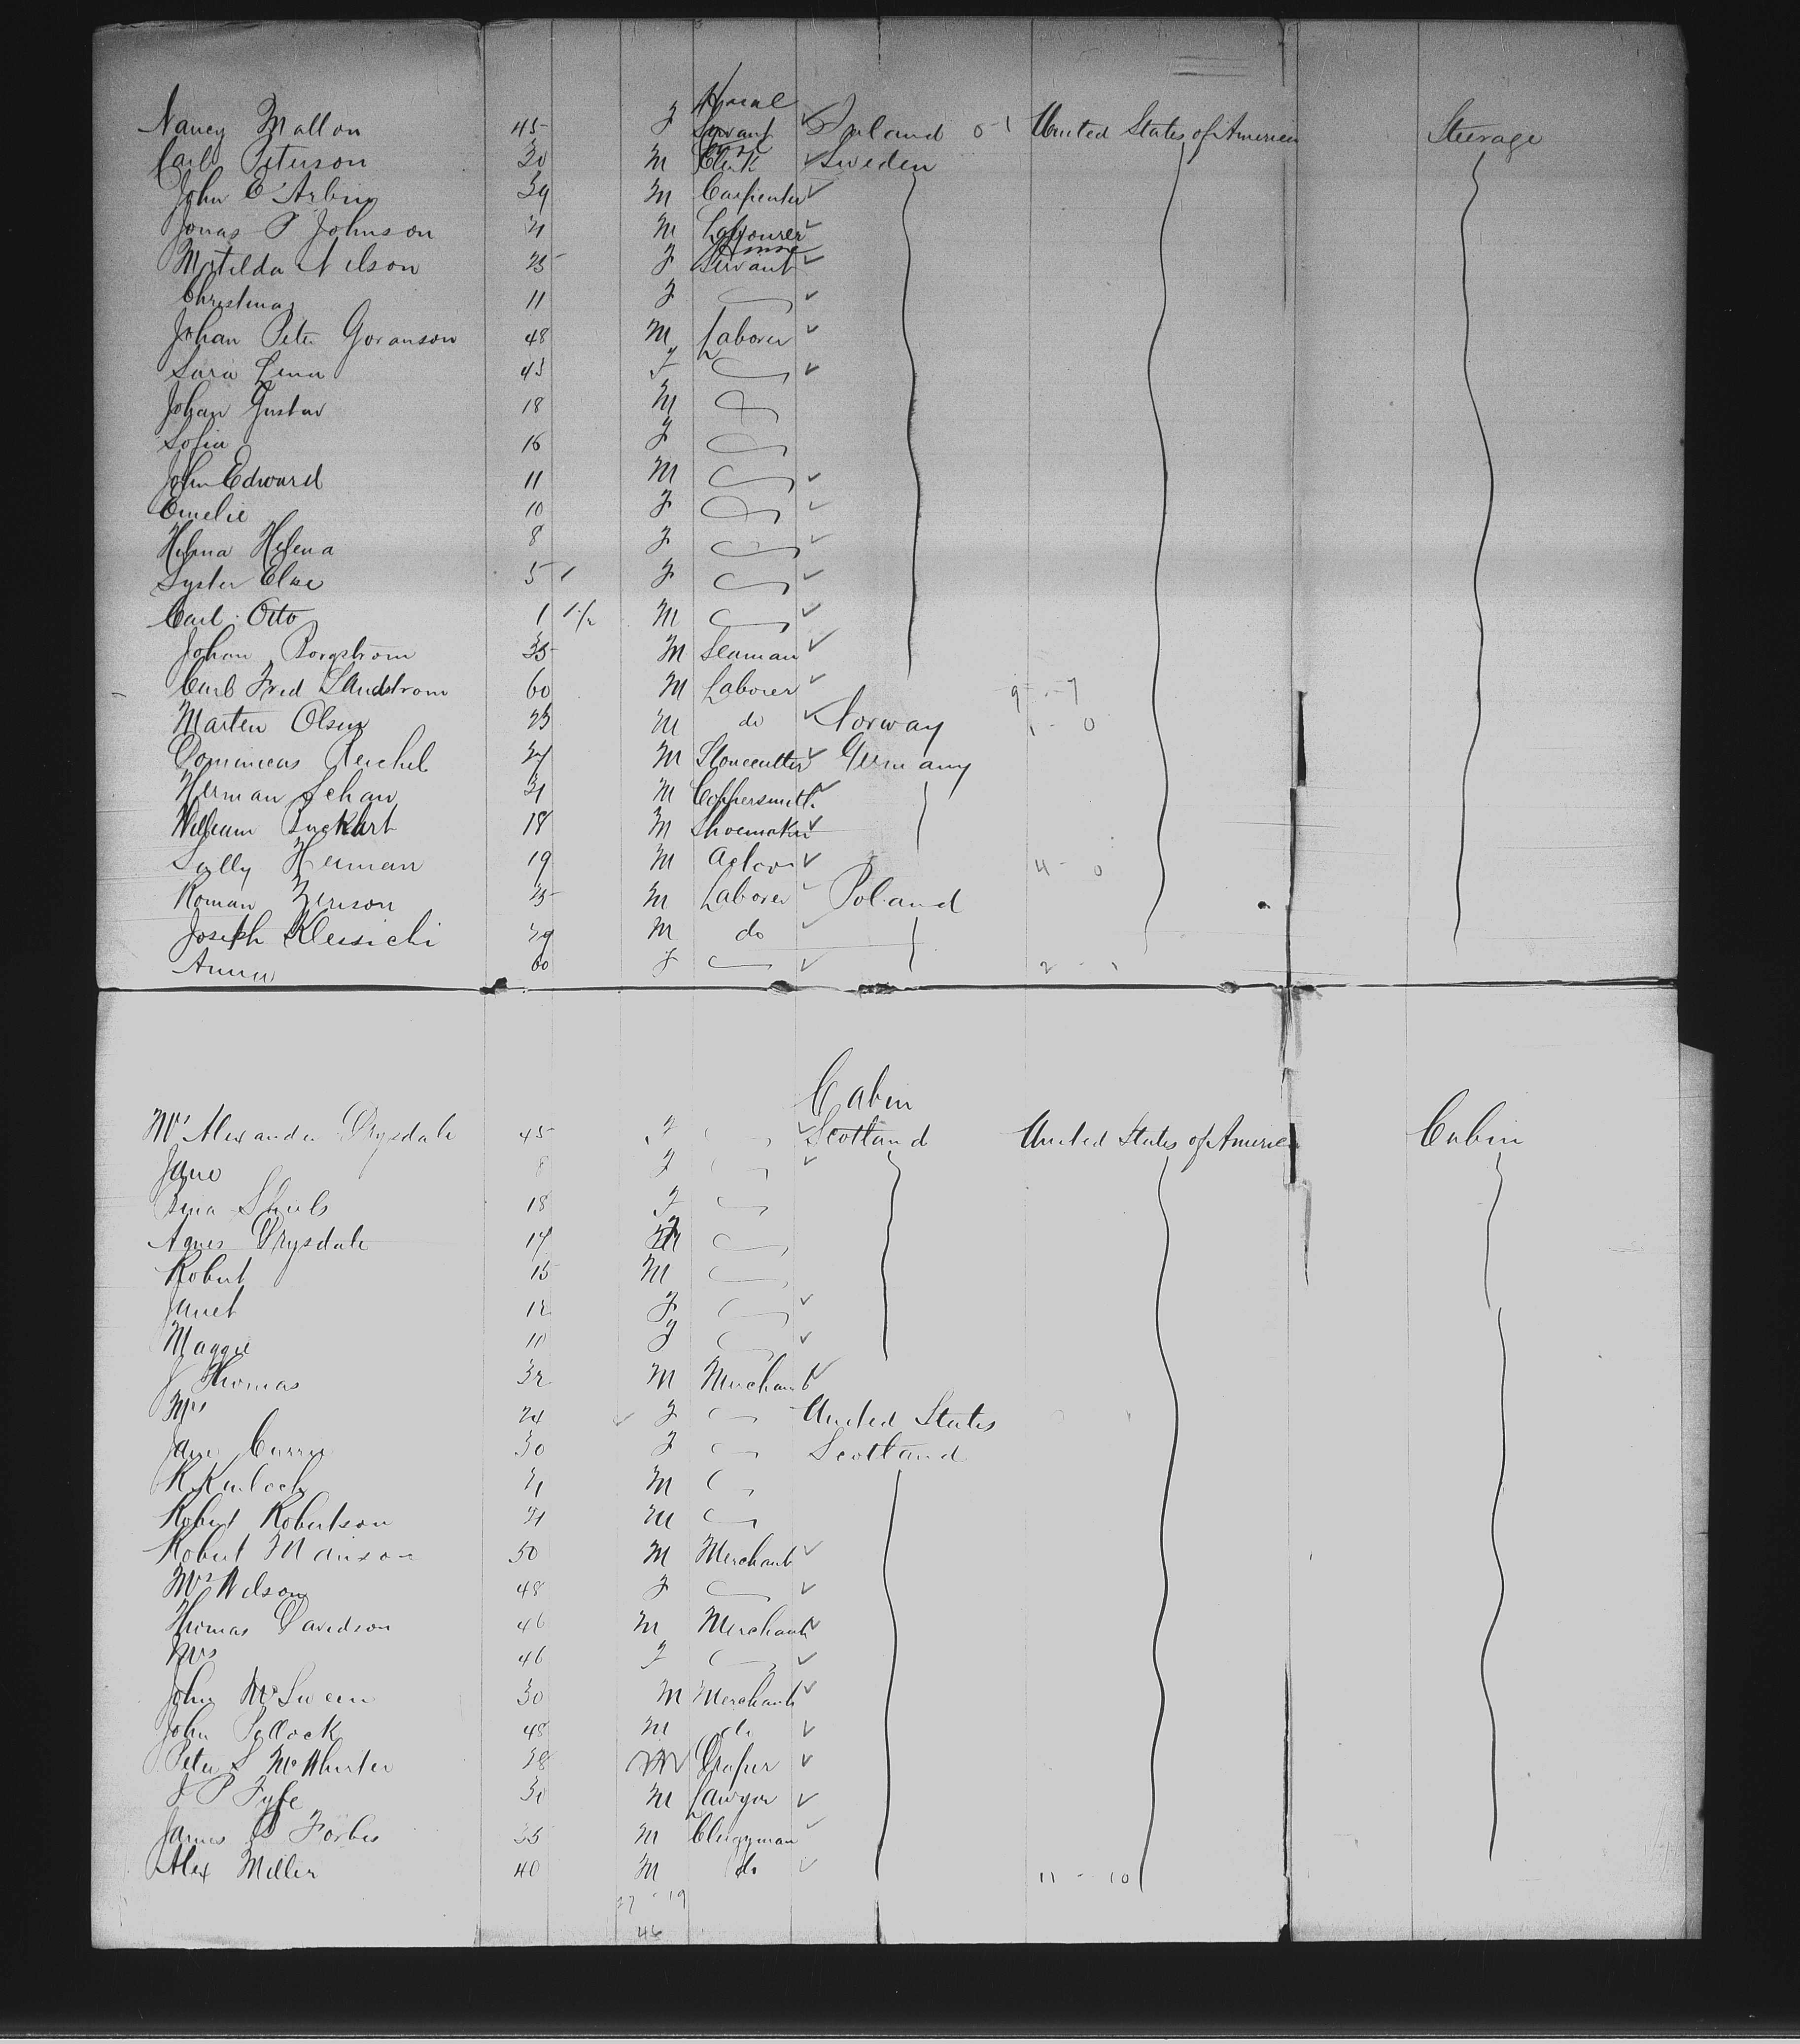 House
Nancy Mallon 45 F Servant Ireland 0-1 United States of America Steerage
Carl Peterson 30 M Clerk Sweden
John E Arbin 39 M Carpenter
Jonas P Johnson 21 M Labourer
House
Matilda Nilson 25 F Servant
Christina 11 F
Johan Peter Goranson 48 M Laborer
Sara Lena 43 F
Johan Gustav 18 M
Sofia 16 F
John Edward 11 M
Emelie 10 F
Helena 8 F
Syster 5 F
Carl Otto 1 1/2 M
Johan Borgstrom 35 M Seaman
Carl Fred Sandstrom 60 M Laborer 9 - 7
Marten Olsen 25 M do Norway 1 - 0
Dominicus Reichel 27 M Stonecutter Germany
Herman Schaw 21 M Coppersmith
William Burkhart 18 M Shoemaker
Sally Herman 19 M Actor 4 - 0
Roman 25 M Laborer Poland
Joseph 29 M do
Anna 60 F 2 - 1
Cabin
Mrs Alexander Drysdale 45 F Scotland United States of America Cabin
Jane 8 F
Shiels 18 F
Agnes Drysdale 17 F
Robert 15 M
Janet 12 F
Maggie 11 F
J Thomas 32 M Merchant
Mrs 24 F United States
Jane Currie 30 F Scotland
R Kinloch 21 M
Robert Robertson 21 M
Robert Manson 50 M Merchant
Mrs Wilson 48 F
Thomas Davidson 46 M Merchant
Mrs 46 F
John McSween 30 M Merchant
John Pollock 48 M do
Peter S McWhirter 38 M Draper
J P Fyfe 30 M Lawyer
James P Forbes 35 M Clergyman
Alex Miller 40 M do 11 - 10
27 - 19
46